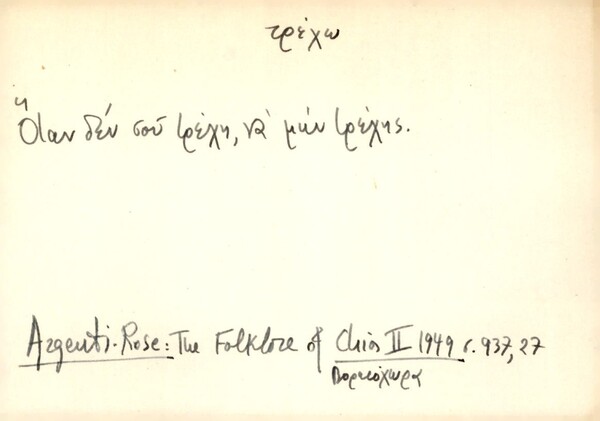 τρέχω
Ὅταν δέν σοῦ τρέχη, νὰ μήν τρέχης.
Argenti-Rose: The Folklore of Chios II 1949 σ. 937, 27
Βορειόχωρα